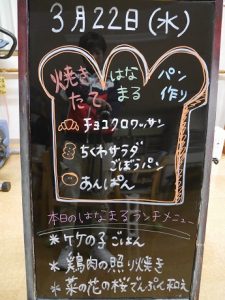 3月22日(水)
焼きたて はなまる パン作り
チョコクロワッサン
ちくわサラダ
ごぼうパン
あんぱん
本日のはなまるランチメニュー
*竹の子ごはん
*鶏肉の照り焼き
*菜の花の桜でんぷん和え